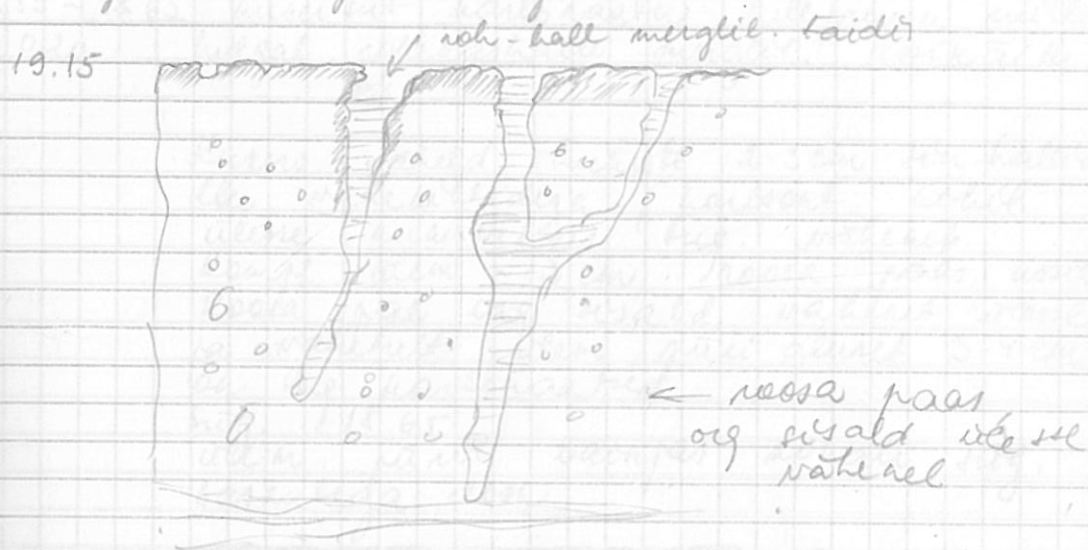 19.15
roh-hall merglil. täidis
← roosa paas,
org sisald üles
väheneb